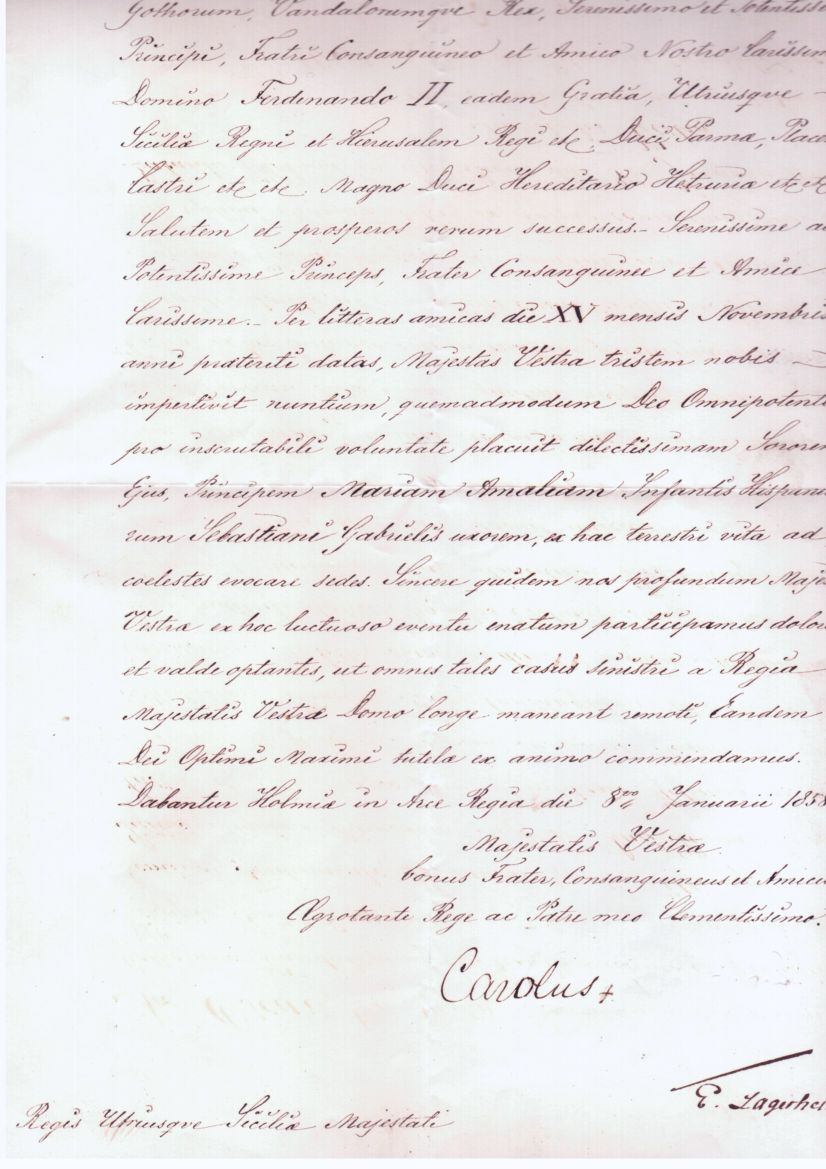 Gothorum, Vandalorumqve Rex, Serenissimo et Potentissi
Principi, Fratri Consanguineo et Amico Nostro Carissim
Domino Ferdinando II, eadem Gratia, Utriusqve —
Siciliæ Regni et Hierusalem Regi etc, Duci Parmæ, Place
Castri etc etc Magno Duci Hereditario Hetruriæ etc etc
Salutem et prosperos rerum successus. – Serenissime a
Potentissime Princeps, Frater Consanguinee et Amice
Carissime. – Per litteras amicas die XV mensis Novembris
anni præteriti datas, Majestas Vestra tristem nobis —
impertivit nuntium, quemadmodum Deo Omnipotenti
pro inscrutabili voluntate placuit dilectissimam Sororem
Ejus, Principem Mariam Amaliam Infantis Hispani
rum Sebastiani Gabrielis uxorem, ex hac terrestri vita ad
coelestes evocare sedes. Sincere quidem nos profundum Maje
Vestræ ex hoc luctuoso eventu enatum participamus dolor
et valde optantes, ut omnes tales casus sinistri a Regia
Majestatis Vestræ Domo longe maneant remoti, Eandem
Dei Optimi Maximi tutelæ ex animo commendamus.
Dabantur Holmiæ in Arce Regia die 8va Januarii 1858
Majestatis Vestræ
bonus Frater, Consanguineus et Amicu
Ægrotante Rege ac Patre meo Clementissimo.
Carolus
E. Lagerhei
Regis Utriusqve Siciliæ Majestati